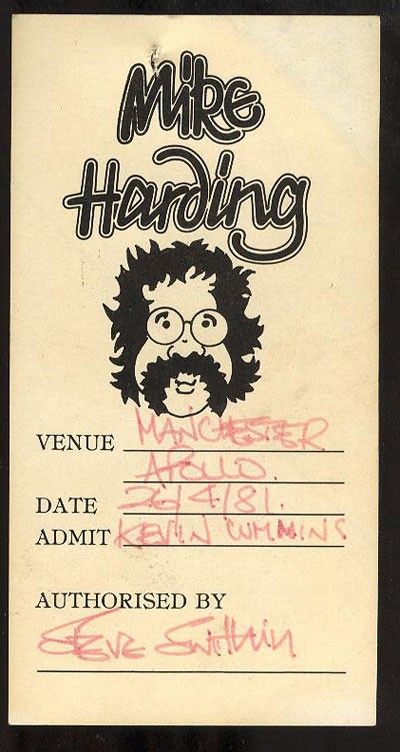 Mike
Harding
VENUE MANCHESTER
APOLLO.
DATE 26/4/81.
ADMIT KEVIN CUMMINS
AUTHORISED BY
STEVE